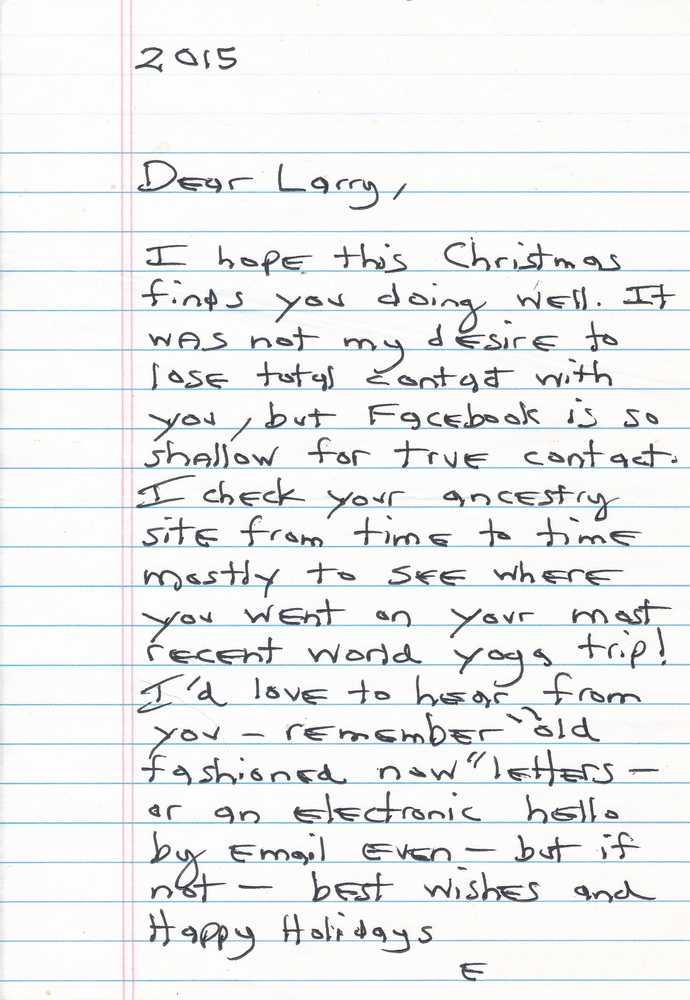 2015
Dear Larry,
I hope this Christmas
finds you doing well. It
was not my desire to
lose total contact with
you, but Facebook is so
shallow for true contact.
I check your ancestry
site from time to time
mostly to see where
you went on your most
recent world yoga trip!
I'd love to hear from
you – remember "old
fashioned now" letters –
or an electronic hello
by email even – but if
not – best wishes and
Happy Holidays
E